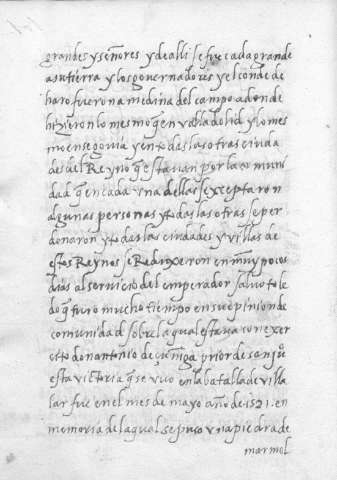 grandes y señores y de alli se fue cada grande
a su tierra y los governadores y el conde de
haro fueron a medina del campo adonde
hizieron lo mesmo q̃ en valladolid y lo mes
mo en segovia y en todas las otras ciuda
des del Reyno q̃ estavan por la comuni
dad q̃ en cada una dellas se exceptaron
algunas personas y todas las otras se per
donaron y todas las ciudades y villas de
estos Reynos se Reduxeron en muy pocos
dias al servicio del emperador salvo tole
do q̃ turo mucho tiempo en su opinion de
comunidad sobre la qual estava con exer
cito don antonio de çuñiga prior de san juº
esta victoria q̃ se uvo en la batalla de villa
lar fue en el mes de mayo año de 1521. en
memoria de la qual se puso una piedra de
marmol